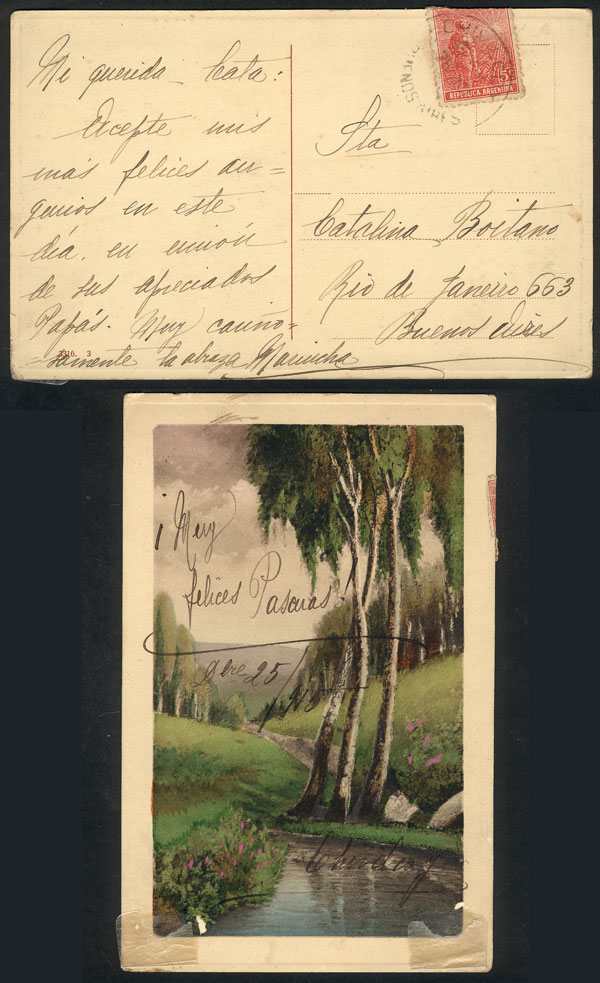 Mi querida Cata:
Acepte mis
más felices au=
gurios en este
día, en unión
de sus apreciados
Papás. Muy cariño-
samente la abraza Maruicha
3316. 3
5c
REPUBLICA ARGENTINA
BUENOS AIRES
Sta
Catalina Boitano
Rio de Janeiro 663
Buenos Aires
¡Muy
felices Pascuas!
Dbre 25/915